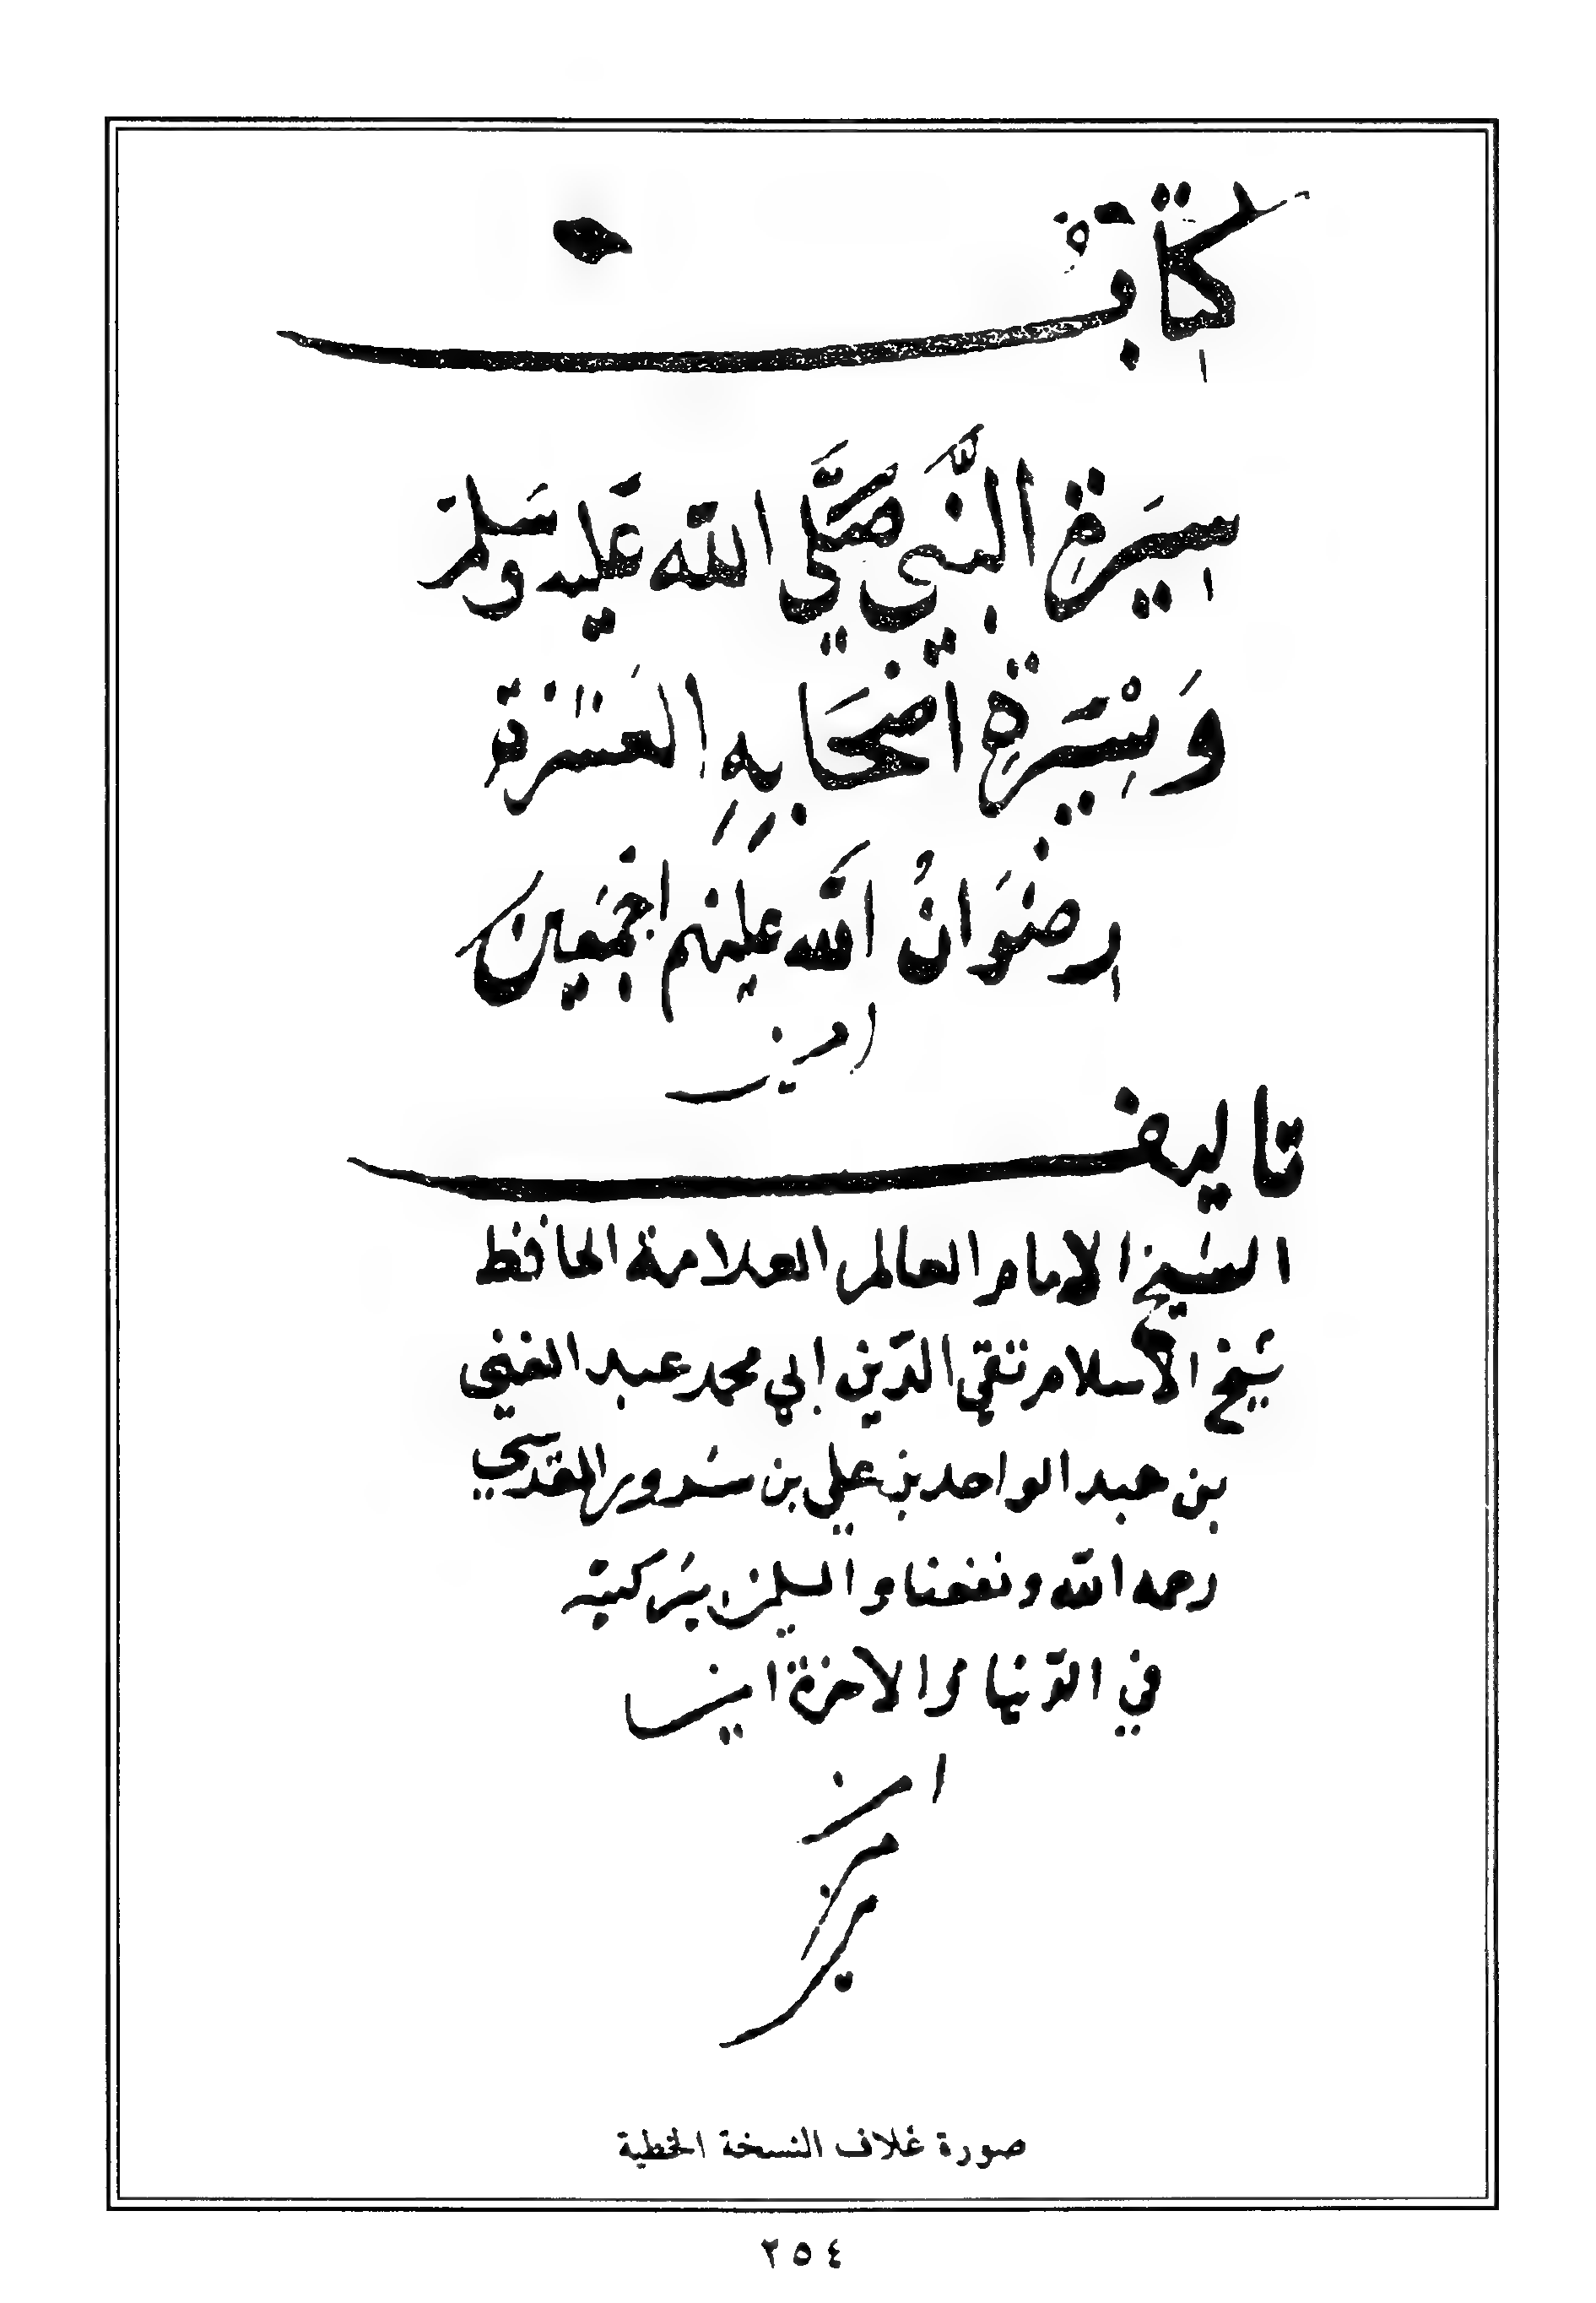 كتاب
سيرة النبي صلى الله عليه وسلم
وسيرة أصحابه العشرة
رضوان الله عليهم اجمعين
امين
تاليف
الشيخ الامام العالم العلامة الحافظ
شيخ الاسلام تقي الدين ابي محمد عبد الغني
بن عبد الواحد بن علي بن سرور المقدسي
رحمه الله ونفعنا والمسلمين ببركته
في الدنيا والاخرة امين
ا
مين
صورة غلاف النسخة الخطية
٢٥٤